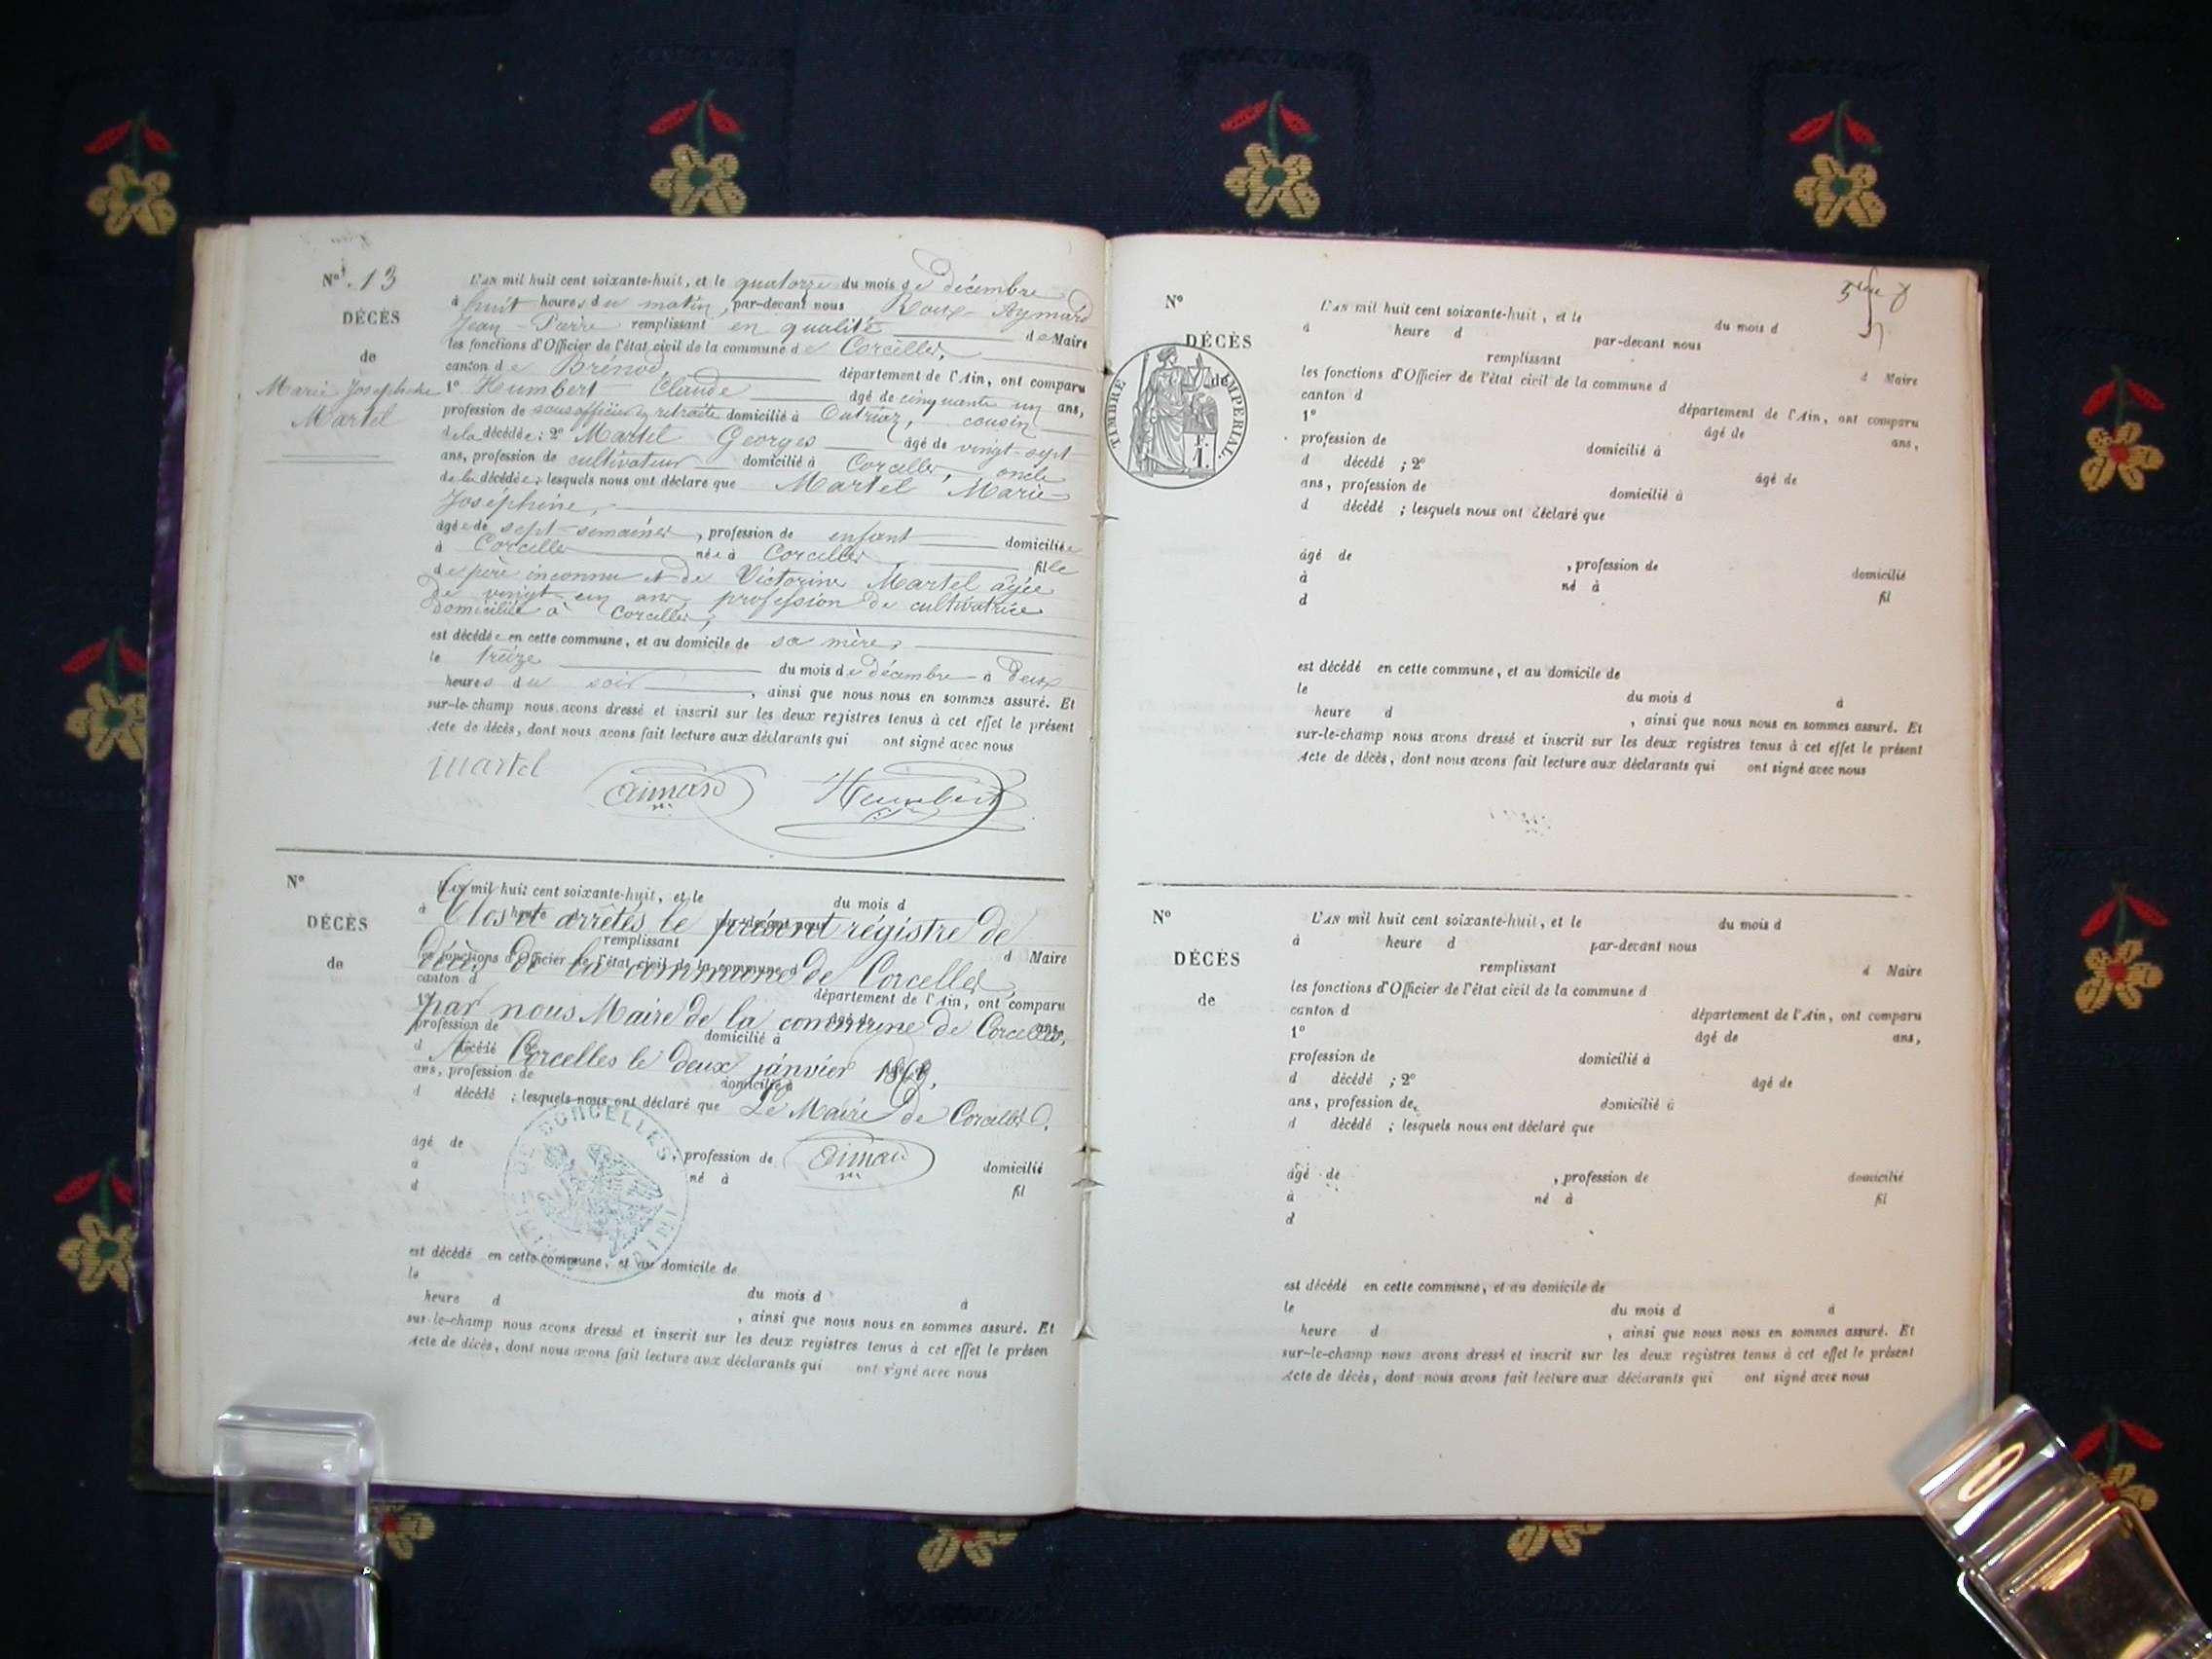 N° 13
DÉCÈS
de
Marie Josephine
Martel
L'AN mil huit cent soixante-huit, et le quatorze du mois de décembre
à huit heures du matin, par-devant nous Roux-Aymard
Jean-Pierre remplissant en qualité de Maire
les fonctions d'Officier de l'état civil de la commune de Corcelles,
canton de Brénod, département de l'Ain, ont comparu
1° Humbert Claude âgé de cinquante un ans,
profession de sous officier en retraite domicilié à Outriaz, cousin
de la décédée; 2° Martel Georges âgé de vingt-sept
ans, profession de cultivateur domicilié à Corcelles, oncle
de la décédée; lesquels nous ont déclaré que Martel Marie-
Joséphine,
âgée de sept semaines, profession de enfant domiciliée
à Corcelles née à Corcelles fille
de père inconnu et de Victorine Martel âgée
de vingt un ans, profession de cultivatrice
domiciliée à Corcelles,
est décédée en cette commune, et au domicile de sa mère,
le treize du mois de décembre à deux
heures du soir, ainsi que nous nous en sommes assuré. Et
sur-le-champ nous avons dressé et inscrit sur les deux registres tenus à cet effet le présent
Acte de décès, dont nous avons fait lecture aux déclarants qui ont signé avec nous
martel aimard Humbert
N°
DÉCÈS
de
L'AN mil huit cent soixante-huit, et le du mois d
à heure d par-devant nous
Clos et arrêtés le présent régistre de
remplissant d Maire
les fonctions d'Officier de l'état civil de la commune d
décès de la commune de Corcelles,
canton d département de l'Ain, ont comparu
par nous Maire de la commune de Corcelles,
1° âgé de ans,
profession de domicilié à
d décédé ; 2°
A Corcelles le deux janvier 1869.
ans, profession de domicilié à
d décédé ; lesquels nous ont déclaré que
Le Maire de Corcelles.
MAIRIE DE CORCELLES
(AIN)
âgé de , profession de domicilié
aimard
à né à fil
d
est décédé en cette commune, et au domicile de
le du mois d à
heure d , ainsi que nous nous en sommes assuré. Et
sur-le-champ nous avons dressé et inscrit sur les deux registres tenus à cet effet le présen
Acte de décès, dont nous avons fait lecture aux déclarants qui ont signé avec nous
N°
DÉCÈS
de
TIMBRE IMPERIAL.
F.
1.
L'AN mil huit cent soixante-huit, et le du mois d
à heure d par-devant nous
remplissant d Maire
les fonctions d'Officier de l'état civil de la commune d
canton d département de l'Ain, ont comparu
1° âgé de ans,
profession de domicilié à
d décédé ; 2° âgé de
ans, profession de domicilié à
d décédé ; lesquels nous ont déclaré que
âgé de , profession de domicilié
à né à fil
d
est décédé en cette commune, et au domicile de
le du mois d à
heure d , ainsi que nous nous en sommes assuré. Et
sur-le-champ nous avons dressé et inscrit sur les deux registres tenus à cet effet le présent
Acte de décès, dont nous avons fait lecture aux déclarants qui ont signé avec nous
N°
DÉCÈS
de
L'AN mil huit cent soixante-huit, et le du mois d
à heure d par-devant nous
remplissant d Maire
les fonctions d'Officier de l'état civil de la commune d
canton d département de l'Ain, ont comparu
1° âgé de ans,
profession de domicilié à
d décédé ; 2° âgé de
ans, profession de domicilié à
d décédé ; lesquels nous ont déclaré que
âgé de , profession de domicilié
à né à fil
d
est décédé en cette commune, et au domicile de
le du mois d à
heure d , ainsi que nous nous en sommes assuré. Et
sur-le-champ nous avons dressé et inscrit sur les deux registres tenus à cet effet le présent
Acte de décès, dont nous avons fait lecture aux déclarants qui ont signé avec nous